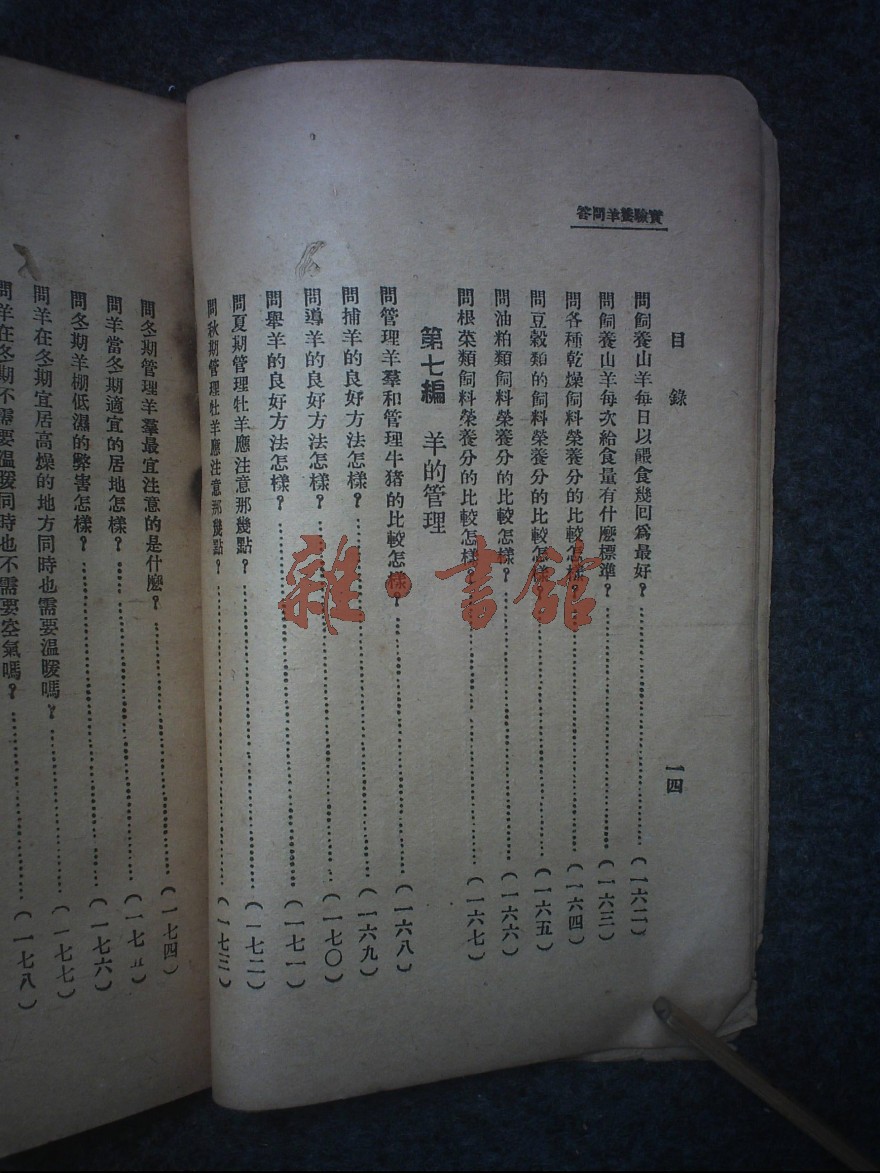 實驗養羊問答
目錄
一四
問飼養山羊每日以餵食幾回爲最好？（一六二）
問飼養山羊每次給食量有什麼標準？（一六三）
問各種乾燥飼料榮養分的比較怎樣？（一六四）
問豆穀類的飼料榮養分的比較怎樣？（一六五）
問油粕類飼料榮養分的比較怎樣？（一六六）
問根菜類飼料榮養分的比較怎樣？（一六七）
第七編 羊的管理
問管理羊羣和管理牛猪的比較怎樣？（一六八）
問捕羊的良好方法怎樣？（一六九）
問導羊的良好方法怎樣？（一七〇）
問舉羊的良好方法怎樣？（一七一）
問夏期管理牡羊應注意那幾點？（一七二）
問秋期管理牡羊應注意那幾點？（一七三）
問冬期管理羊羣最宜注意的是什麼？（一七四）
問羊當冬期適宜的居地怎樣？（一七五）
問冬期羊棚低濕的弊害怎樣？（一七六）
問羊在冬期宜居高燥的地方同時也需要溫暖嗎？（一七七）
問羊在冬期不需要溫暖同時也不需要空氣嗎？（一七八）
雜·書館